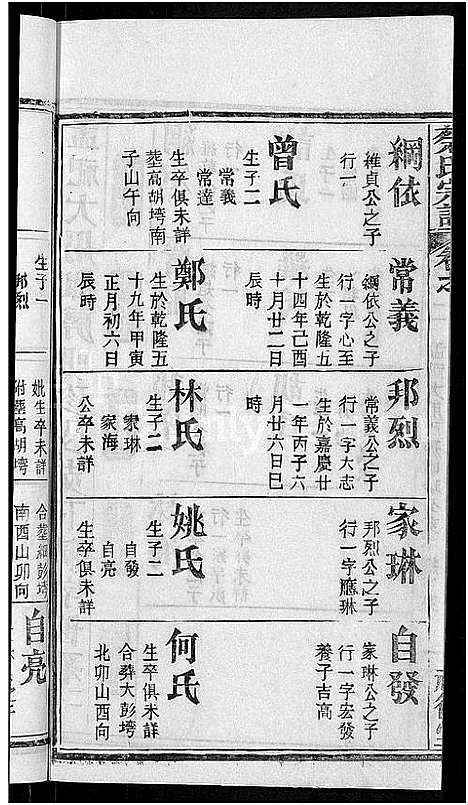 綱依
維貞公之子
行一
曾氏
生子二
常義
常達
生卒俱未詳
塟高胡塆南
子山午向
常義
綱依公之子
行一字心至
生於乾隆五
十四年己酉
十月廿二日
辰時
鄭氏
生於乾隆五
十九年甲寅
正月初六日
辰時
邦烈
常義公之子
行一字大志
生於嘉慶廿
一年丙子六
月廿六日巳
時
林氏
生子二
家琳
家海
公卒未詳
家琳
邦烈公之子
行一字應琳
姚氏
生子二
自發
自亮
生卒俱未詳
自發
家琳公之子
行一字宏發
養子吉高
何氏
生卒俱未詳
合葬大彭塆
北卯山酉向
生子一
邦烈
妣生卒未詳
附塟高胡塆
合塟細彭塆
南酉山卯向
自亮